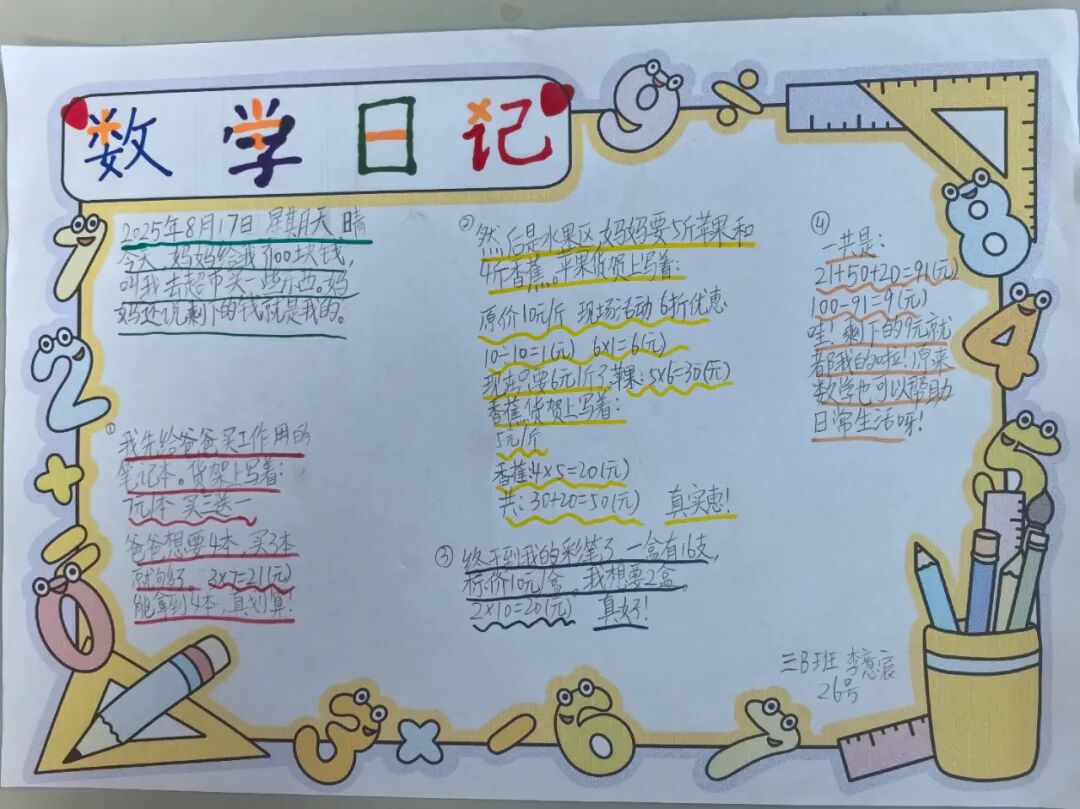 数学日记
2025年8月17日 星期天 晴
今天,妈妈给我100块钱,
叫我去超市买一些东西。妈
妈还说剩下的钱就是我的。
①
我先给爸爸买工作用的
笔记本。货架上写着:
7元1本 买三送一
爸爸想要4本,买3本
就够了。3×7=21(元)
能拿到4本,真划算!
②
然后是水果区,妈妈要5斤苹果和
4斤香蕉。苹果货贺上写着:
原价10元/斤 现场活动 6折优惠
10÷10=1(元) 6×1=6(元)
现在只要6元1斤了,苹果:5×6=30(元)
香蕉货贺上写着:
5元/斤
香蕉:4×5=20(元)
共:30+20=50(元) 真实惠!
③
终于到我的彩笔了,一盒有16支,
标价10元1盒。我想要2盒。
2×10=20(元) 真好!
④
一共是:
21+50+20=91(元)
100-91=9(元)
哇!剩下的9元就
都我的啦!原来
数学也可以帮助
日常生活呀!
三B班 李意宸
26号